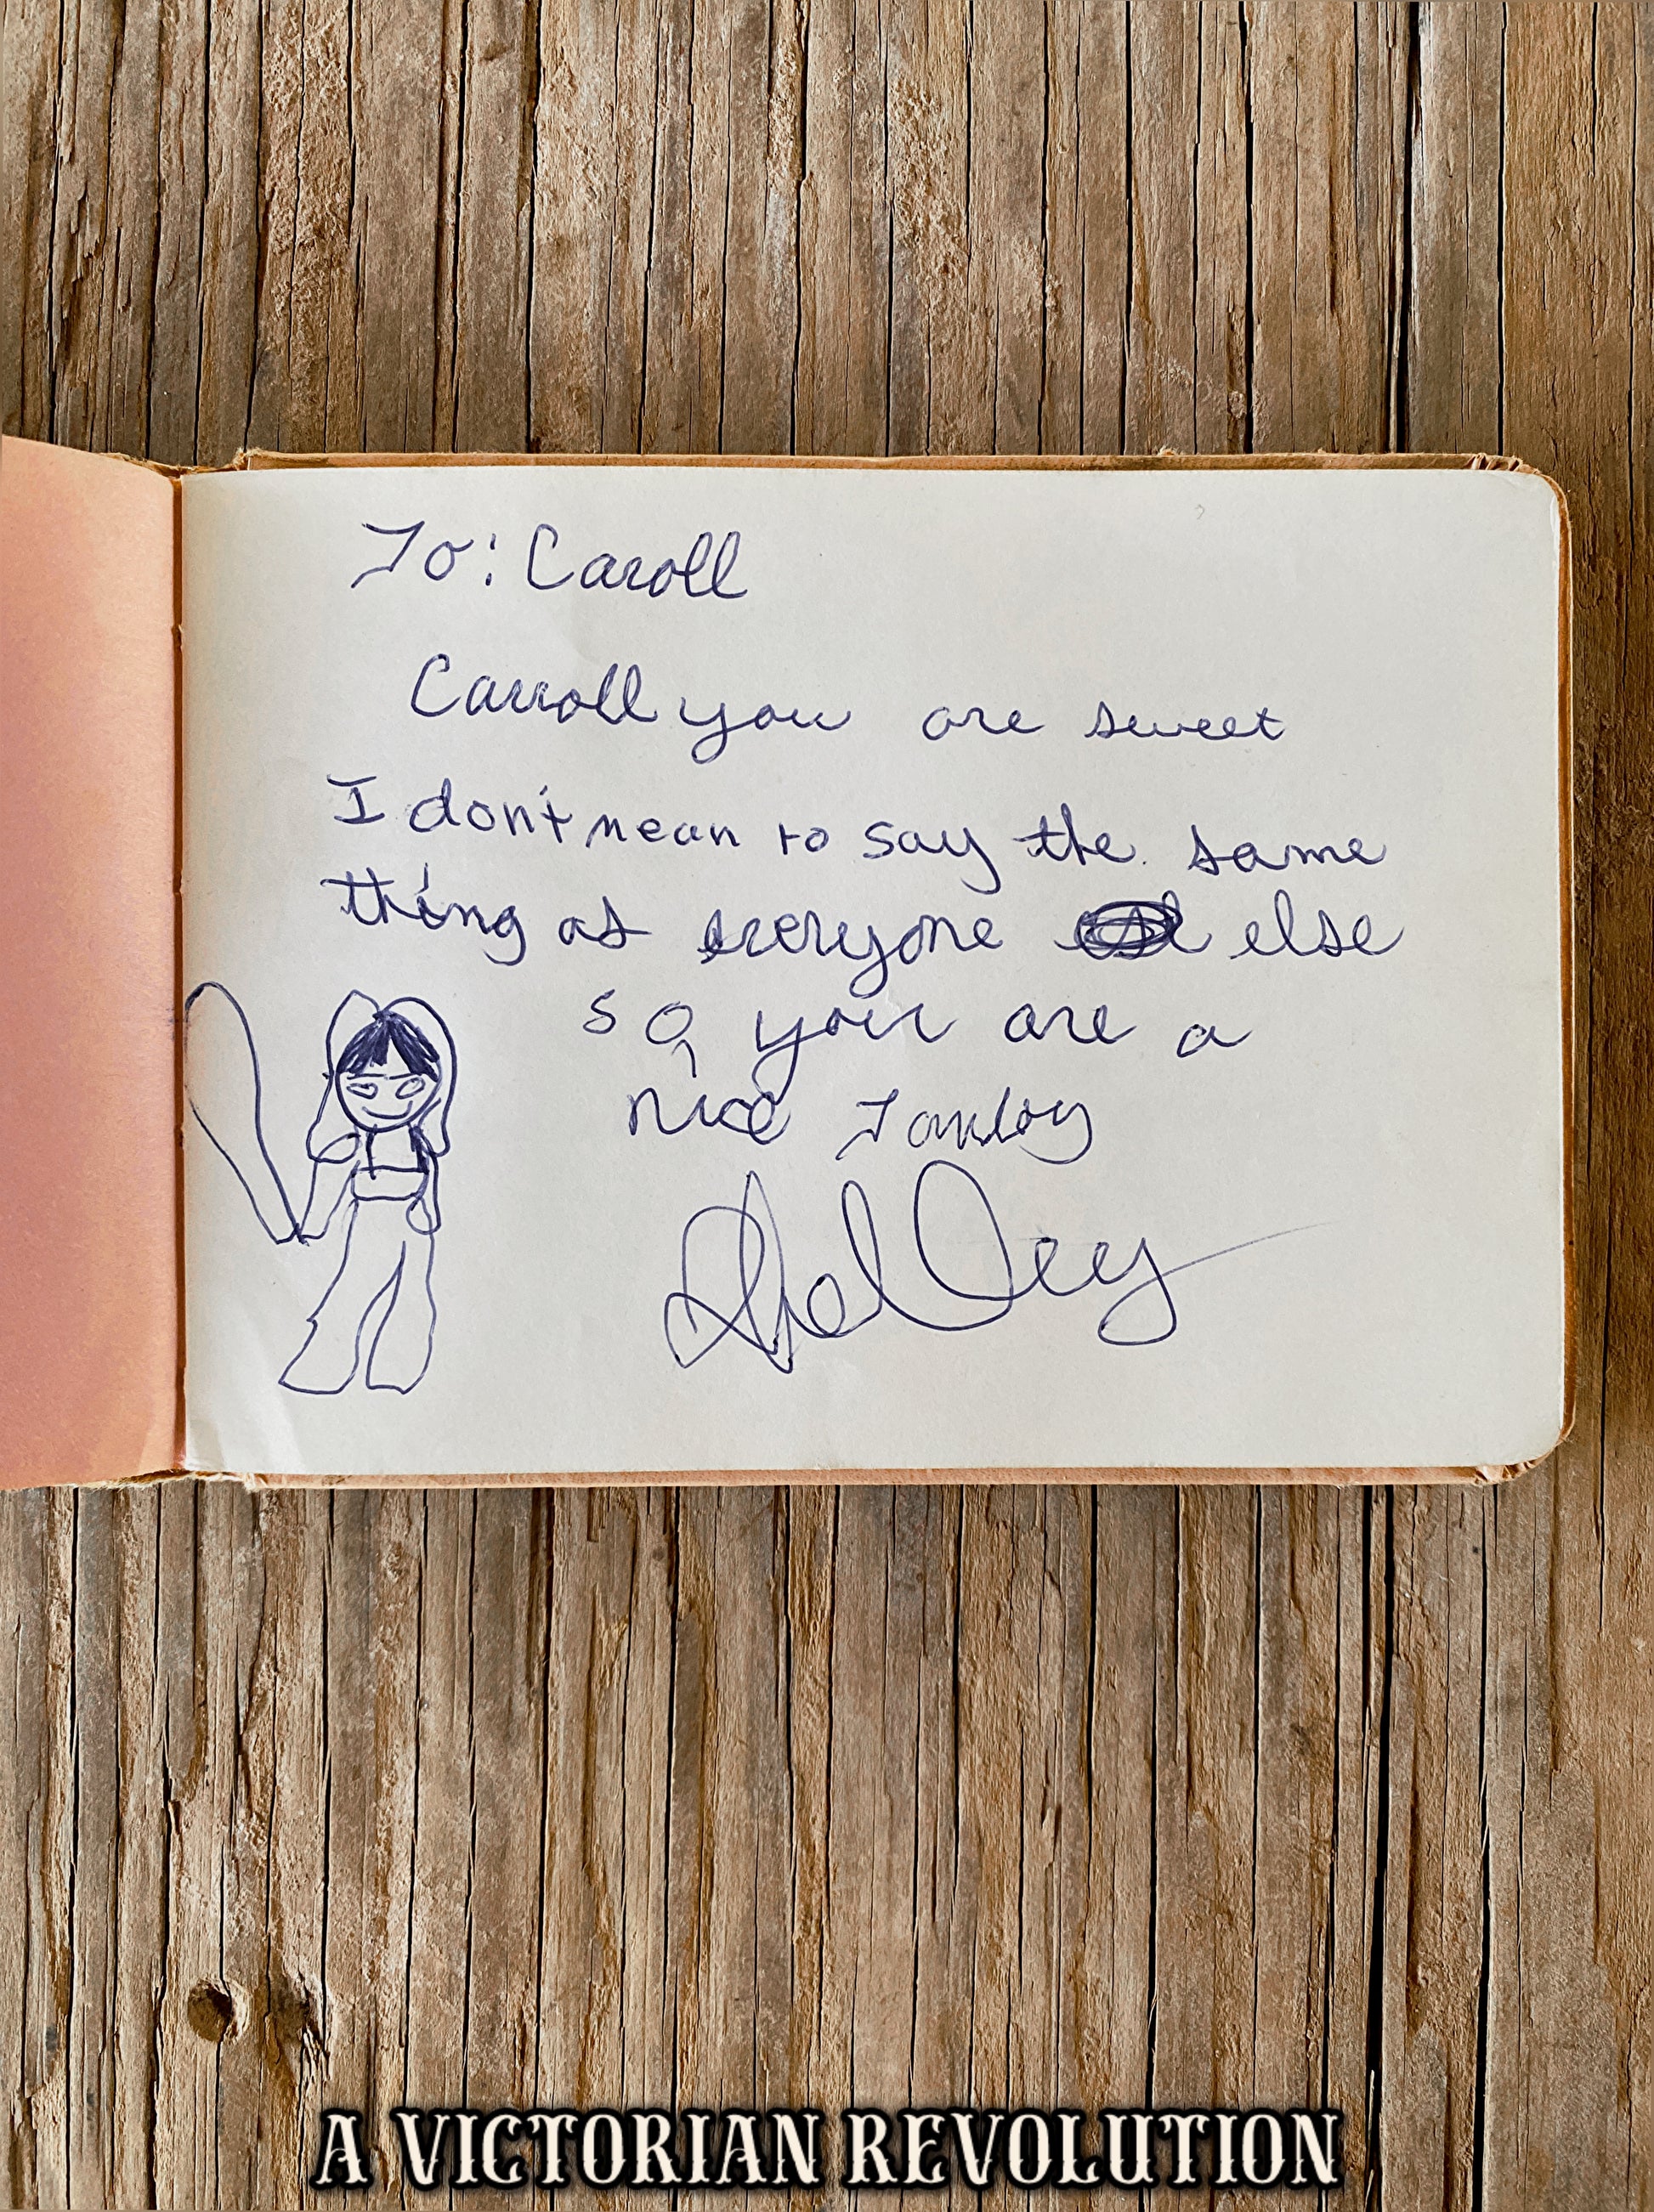 To: Caroll
Carroll you are sweet
I don't mean to say the same
thing as everyone else
so, your are a
nice
Shelley
A VICTORIAN REVOLUTION